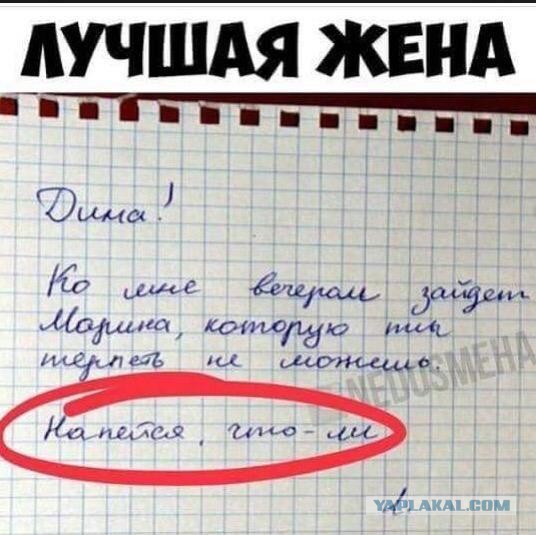 ЛУЧШАЯ ЖЕНА
Дима!
Ко мне вечером зайдет
Марина, которую ты
терпеть не можешь.
NEDOSMEHA
Напейся, что-ли
YAPLAKAL.COM